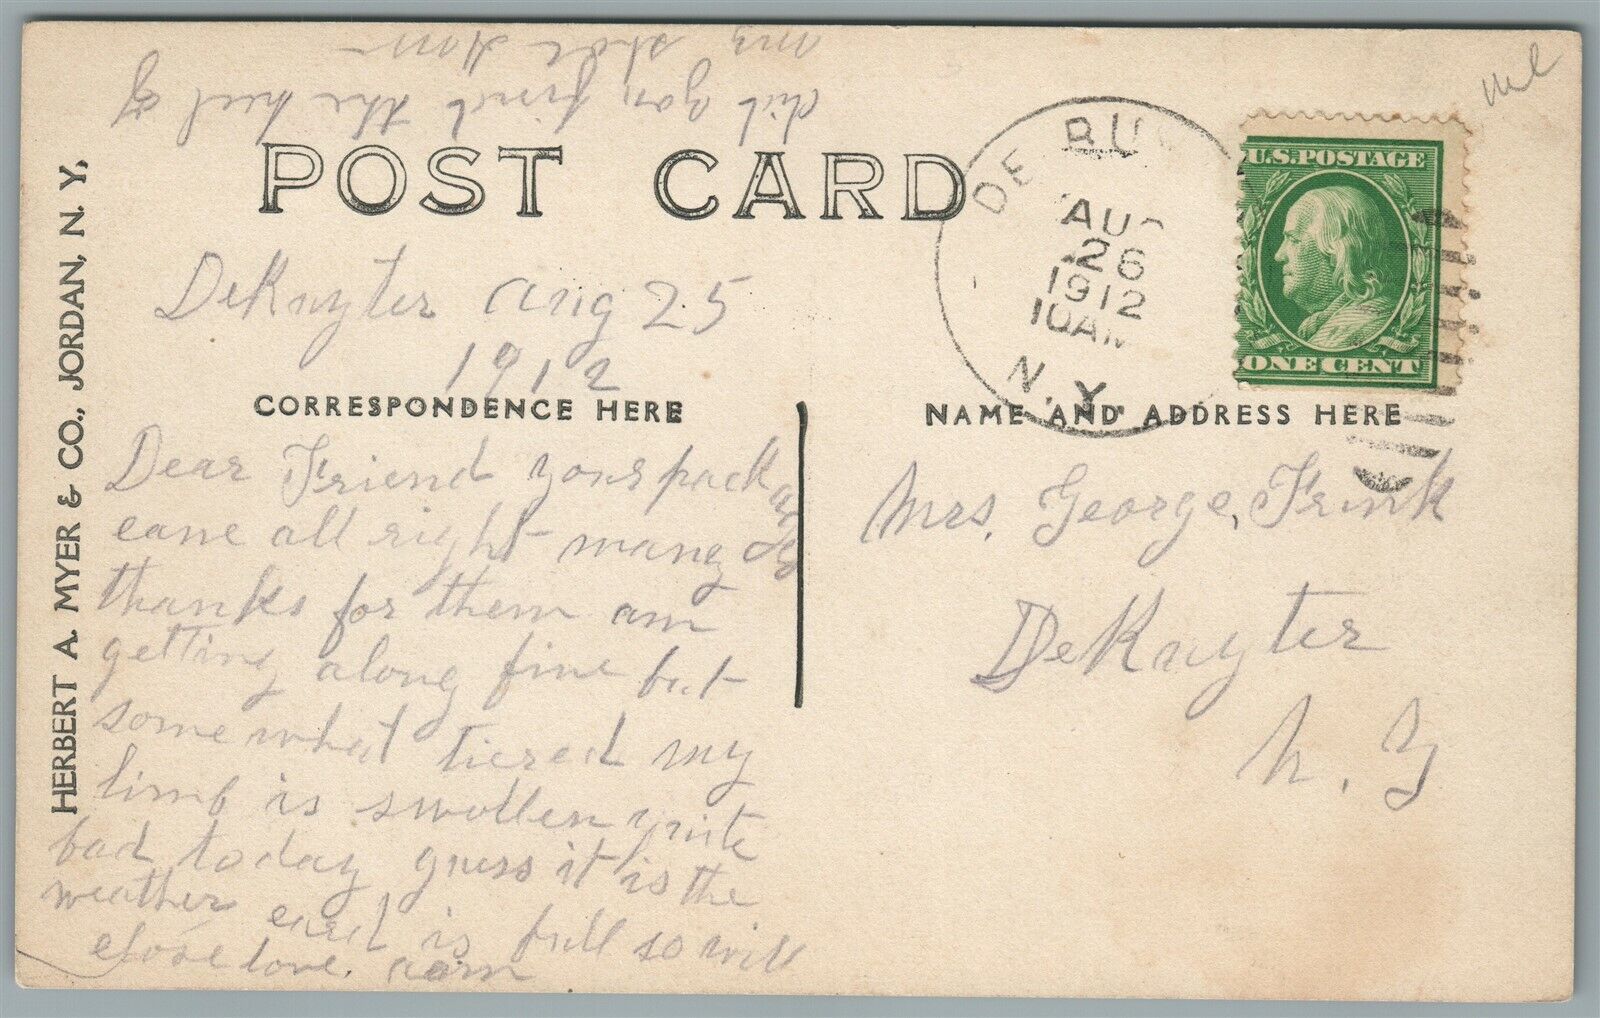 did you find the heel of
my shoe
me
POST CARD
HERBERT A. MYER & CO., JORDAN, N. Y.
DE RU
AUG
26
1912
10AM
N.Y.
U.S. POSTAGE
ONE CENT
DeRuyter Aug 25
1912
CORRESPONDENCE HERE
NAME AND ADDRESS HERE
Dear Friend your packages
came all right many
thanks for them am
getting along fine but
somewhat tiered my
limb is swollen quite
bad today guess it is the
weather card is full so will
close love.
Mrs. George, Frink
DeRuyter
N. Y